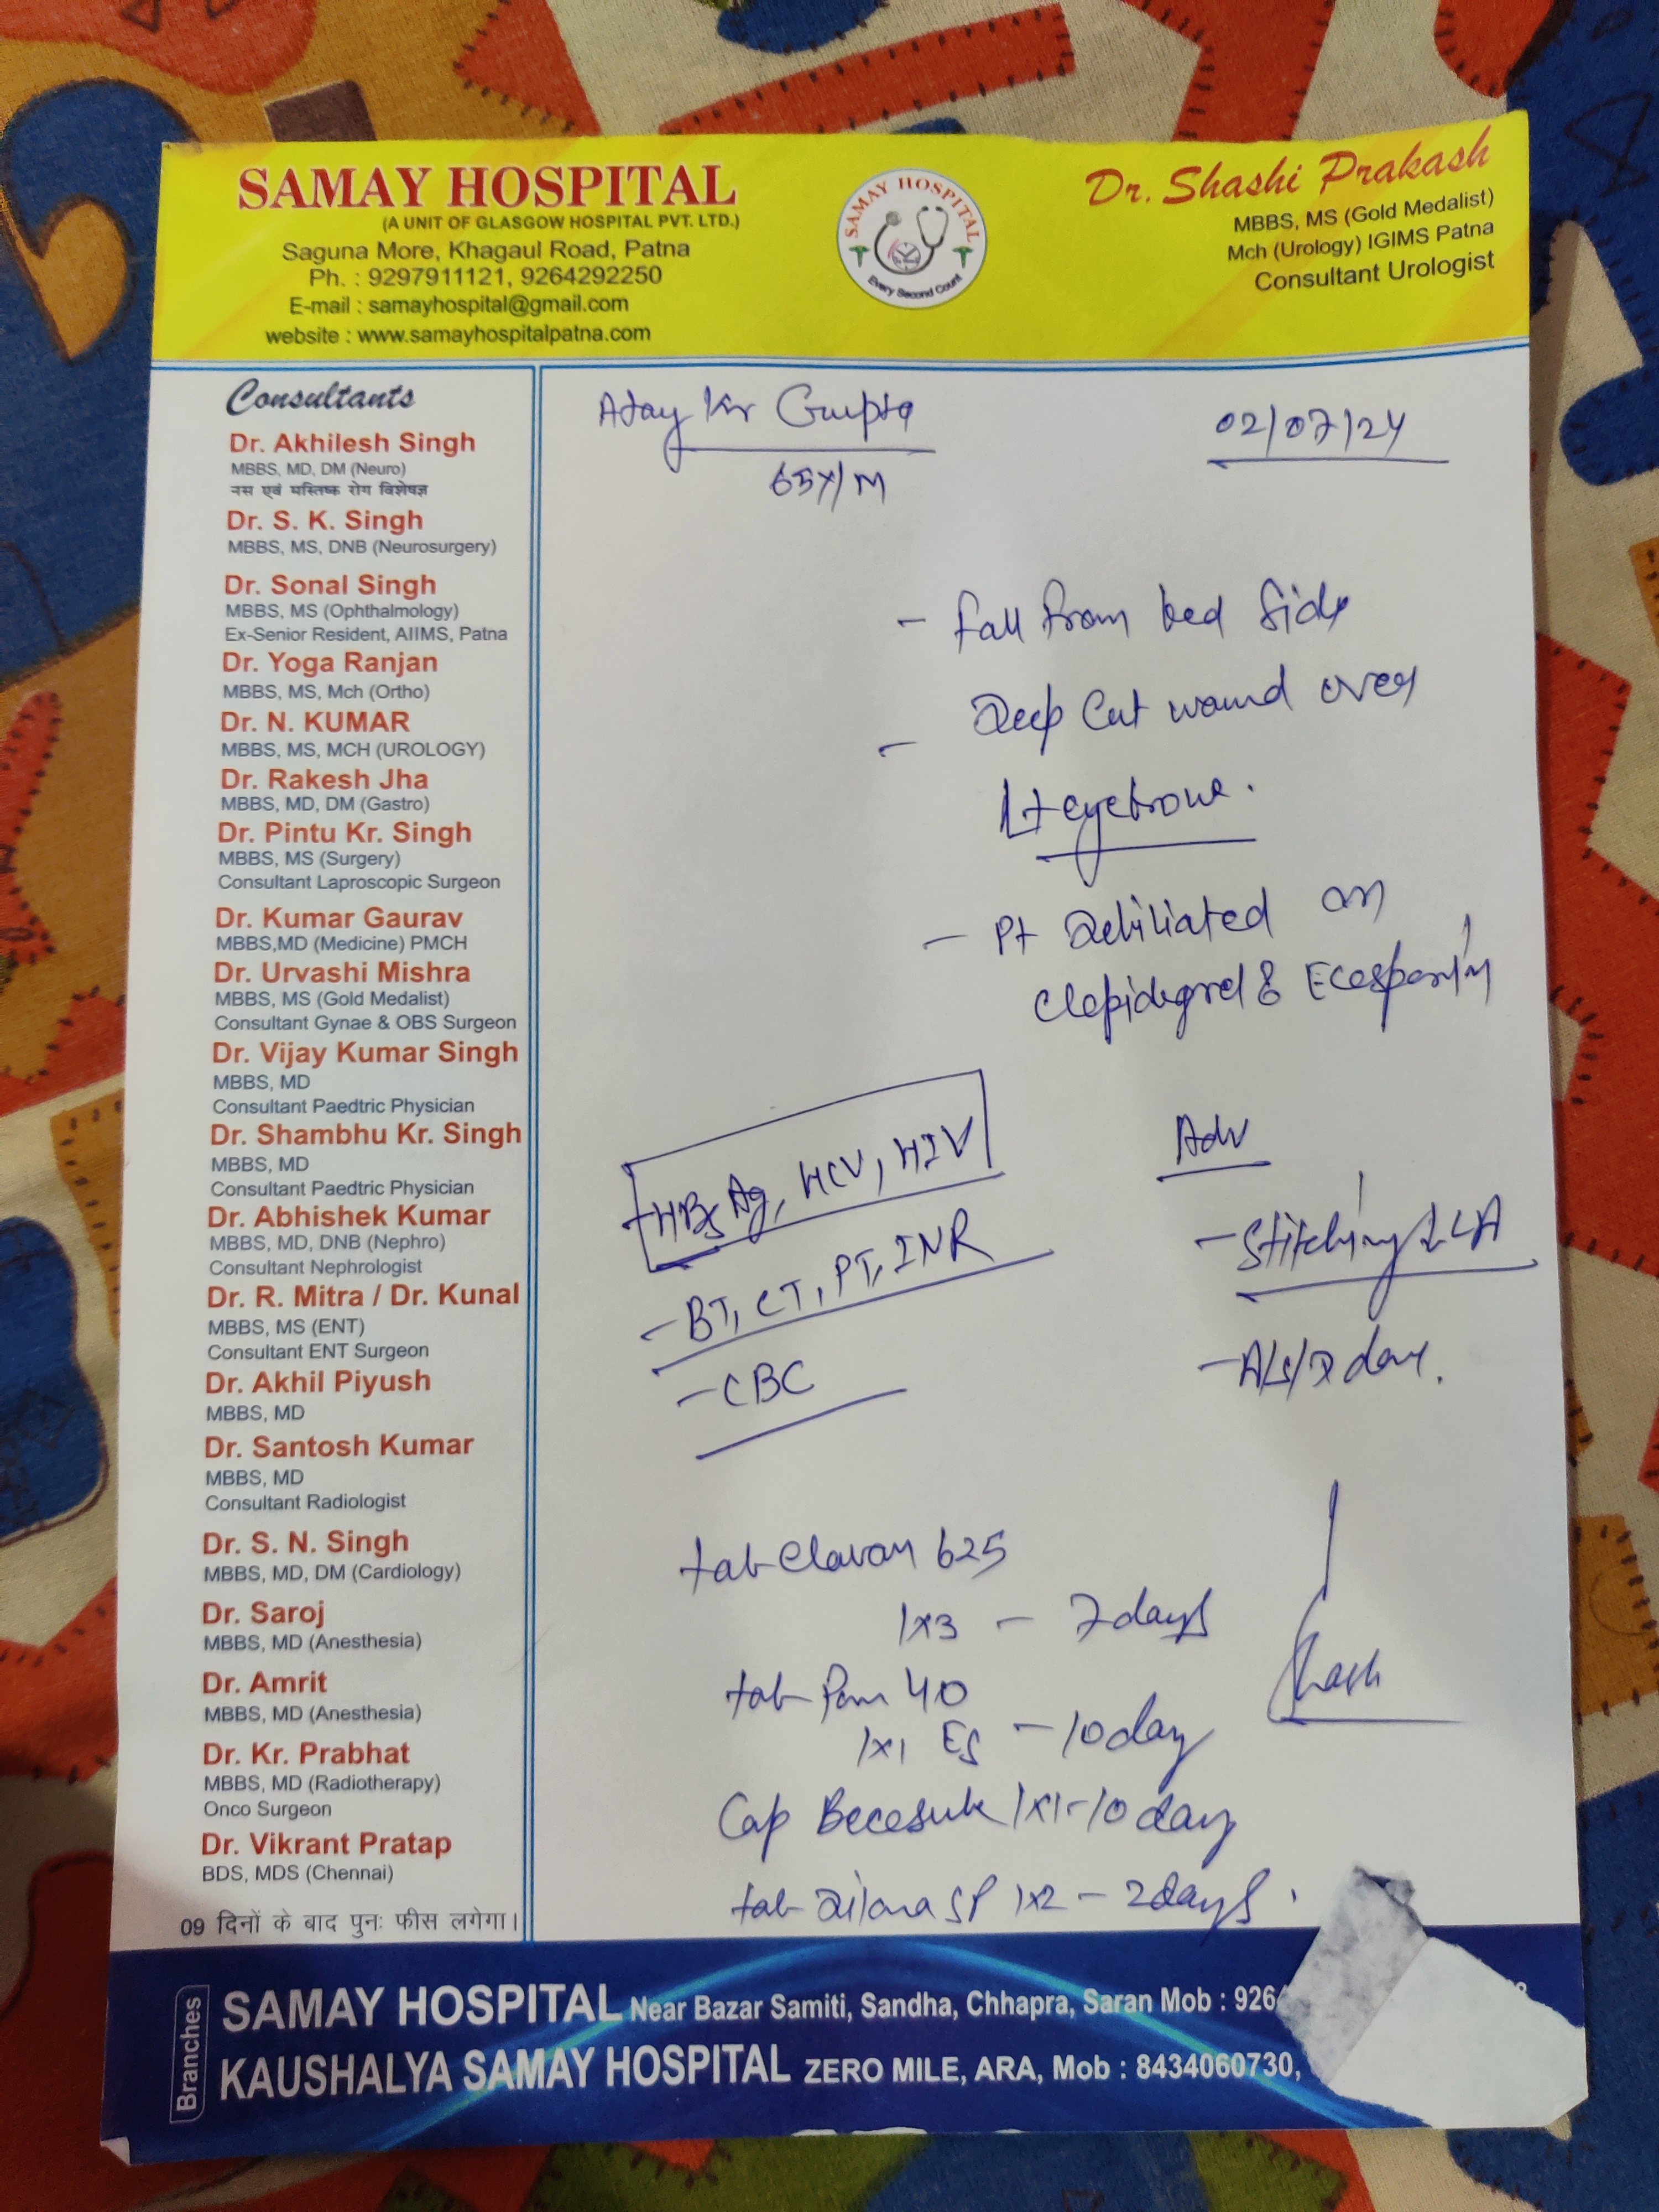 SAMAY HOSPITAL
(A UNIT OF GLASGOW HOSPITAL PVT. LTD.)
Saguna More, Khagaul Road, Patna
Ph. : 9297911121, 9264292250
E-mail : samayhospital@gmail.com
website : www.samayhospitalpatna.com
SAMAY HOSPITAL
Every Second Count
Dr. Shashi Prakash
MBBS, MS (Gold Medalist)
Mch (Urology) IGIMS Patna
Consultant Urologist
Consultants
Dr. Akhilesh Singh
MBBS, MD, DM (Neuro)
नस एवं मस्तिष्क रोग विशेषज्ञ
Dr. S. K. Singh
MBBS, MS, DNB (Neurosurgery)
Dr. Sonal Singh
MBBS, MS (Ophthalmology)
Ex-Senior Resident, AIIMS, Patna
Dr. Yoga Ranjan
MBBS, MS, Mch (Ortho)
Dr. N. KUMAR
MBBS, MS, MCH (UROLOGY)
Dr. Rakesh Jha
MBBS, MD, DM (Gastro)
Dr. Pintu Kr. Singh
MBBS, MS (Surgery)
Consultant Laproscopic Surgeon
Dr. Kumar Gaurav
MBBS,MD (Medicine) PMCH
Dr. Urvashi Mishra
MBBS, MS (Gold Medalist)
Consultant Gynae & OBS Surgeon
Dr. Vijay Kumar Singh
MBBS, MD
Consultant Paedtric Physician
Dr. Shambhu Kr. Singh
MBBS, MD
Consultant Paedtric Physician
Dr. Abhishek Kumar
MBBS, MD, DNB (Nephro)
Consultant Nephrologist
Dr. R. Mitra / Dr. Kunal
MBBS, MS (ENT)
Consultant ENT Surgeon
Dr. Akhil Piyush
MBBS, MD
Dr. Santosh Kumar
MBBS, MD
Consultant Radiologist
Dr. S. N. Singh
MBBS, MD, DM (Cardiology)
Dr. Saroj
MBBS, MD (Anesthesia)
Dr. Amrit
MBBS, MD (Anesthesia)
Dr. Kr. Prabhat
MBBS, MD (Radiotherapy)
Onco Surgeon
Dr. Vikrant Pratap
BDS, MDS (Chennai)
09 दिनों के बाद पुनः फीस लगेगा।
Ajay Kr Gupta
65Y/M
02/07/24
- fall from bed side
- Deep Cut wound over
Lt eyebrow.
- Pt on
Clopidogrel & Ecosporin
HBsAg, HCV, HIV
- BT, CT, PT, INR
- CBC
Adv
- Stitching LA
- day.
tab Clavam 625
1x3 - 7 days
tab Pan 40
1x1 ES - 10 day
Cap 1x1 - 10 day
tab SP 1x2 - 2 days.
Branches
SAMAY HOSPITAL Near Bazar Samiti, Sandha, Chhapra, Saran Mob : 926
KAUSHALYA SAMAY HOSPITAL ZERO MILE, ARA, Mob : 8434060730,